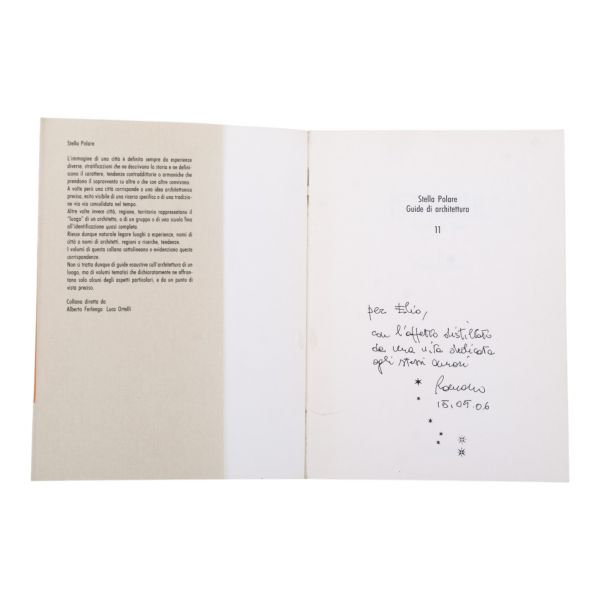 Stella Polare
L'immagine di una città è definita sempre da esperienze
diverse, stratificazioni che ne descrivono la storia e ne defini-
scono il carattere, tendenze contraddittorie o armoniche che
prendono il sopravvento su altre o che con altre convivono.
A volte però una città corrisponde a una idea architettonica
precisa, esito visibile di una ricerca specifica o di una tradizio-
ne via via consolidata nel tempo.
Altre volte invece città, regione, territorio rappresentano il
"luogo" di un architetto, o di un gruppo o di una scuola fino
all'identificazione quasi completa.
Riesce dunque naturale legare luoghi a esperienze, nomi di
città a nomi di architetti, regioni a ricerche, tendenze.
I volumi di questa collana sottolineano e evidenziano questa
corrispondenza.
Non si tratta dunque di guide esaustive sull'architettura di un
luogo, ma di volumi tematici che dichiaratamente ne affron-
tano solo alcuni degli aspetti particolari, e da un punto di
vista preciso.
Collana diretta da
Alberto Ferlenga Luca Ortelli
Stella Polare
Guide di architettura
11
per Elio,
con l'affetto distillato
da una vita dedicata
agli stessi amori
Romano
15.09.06